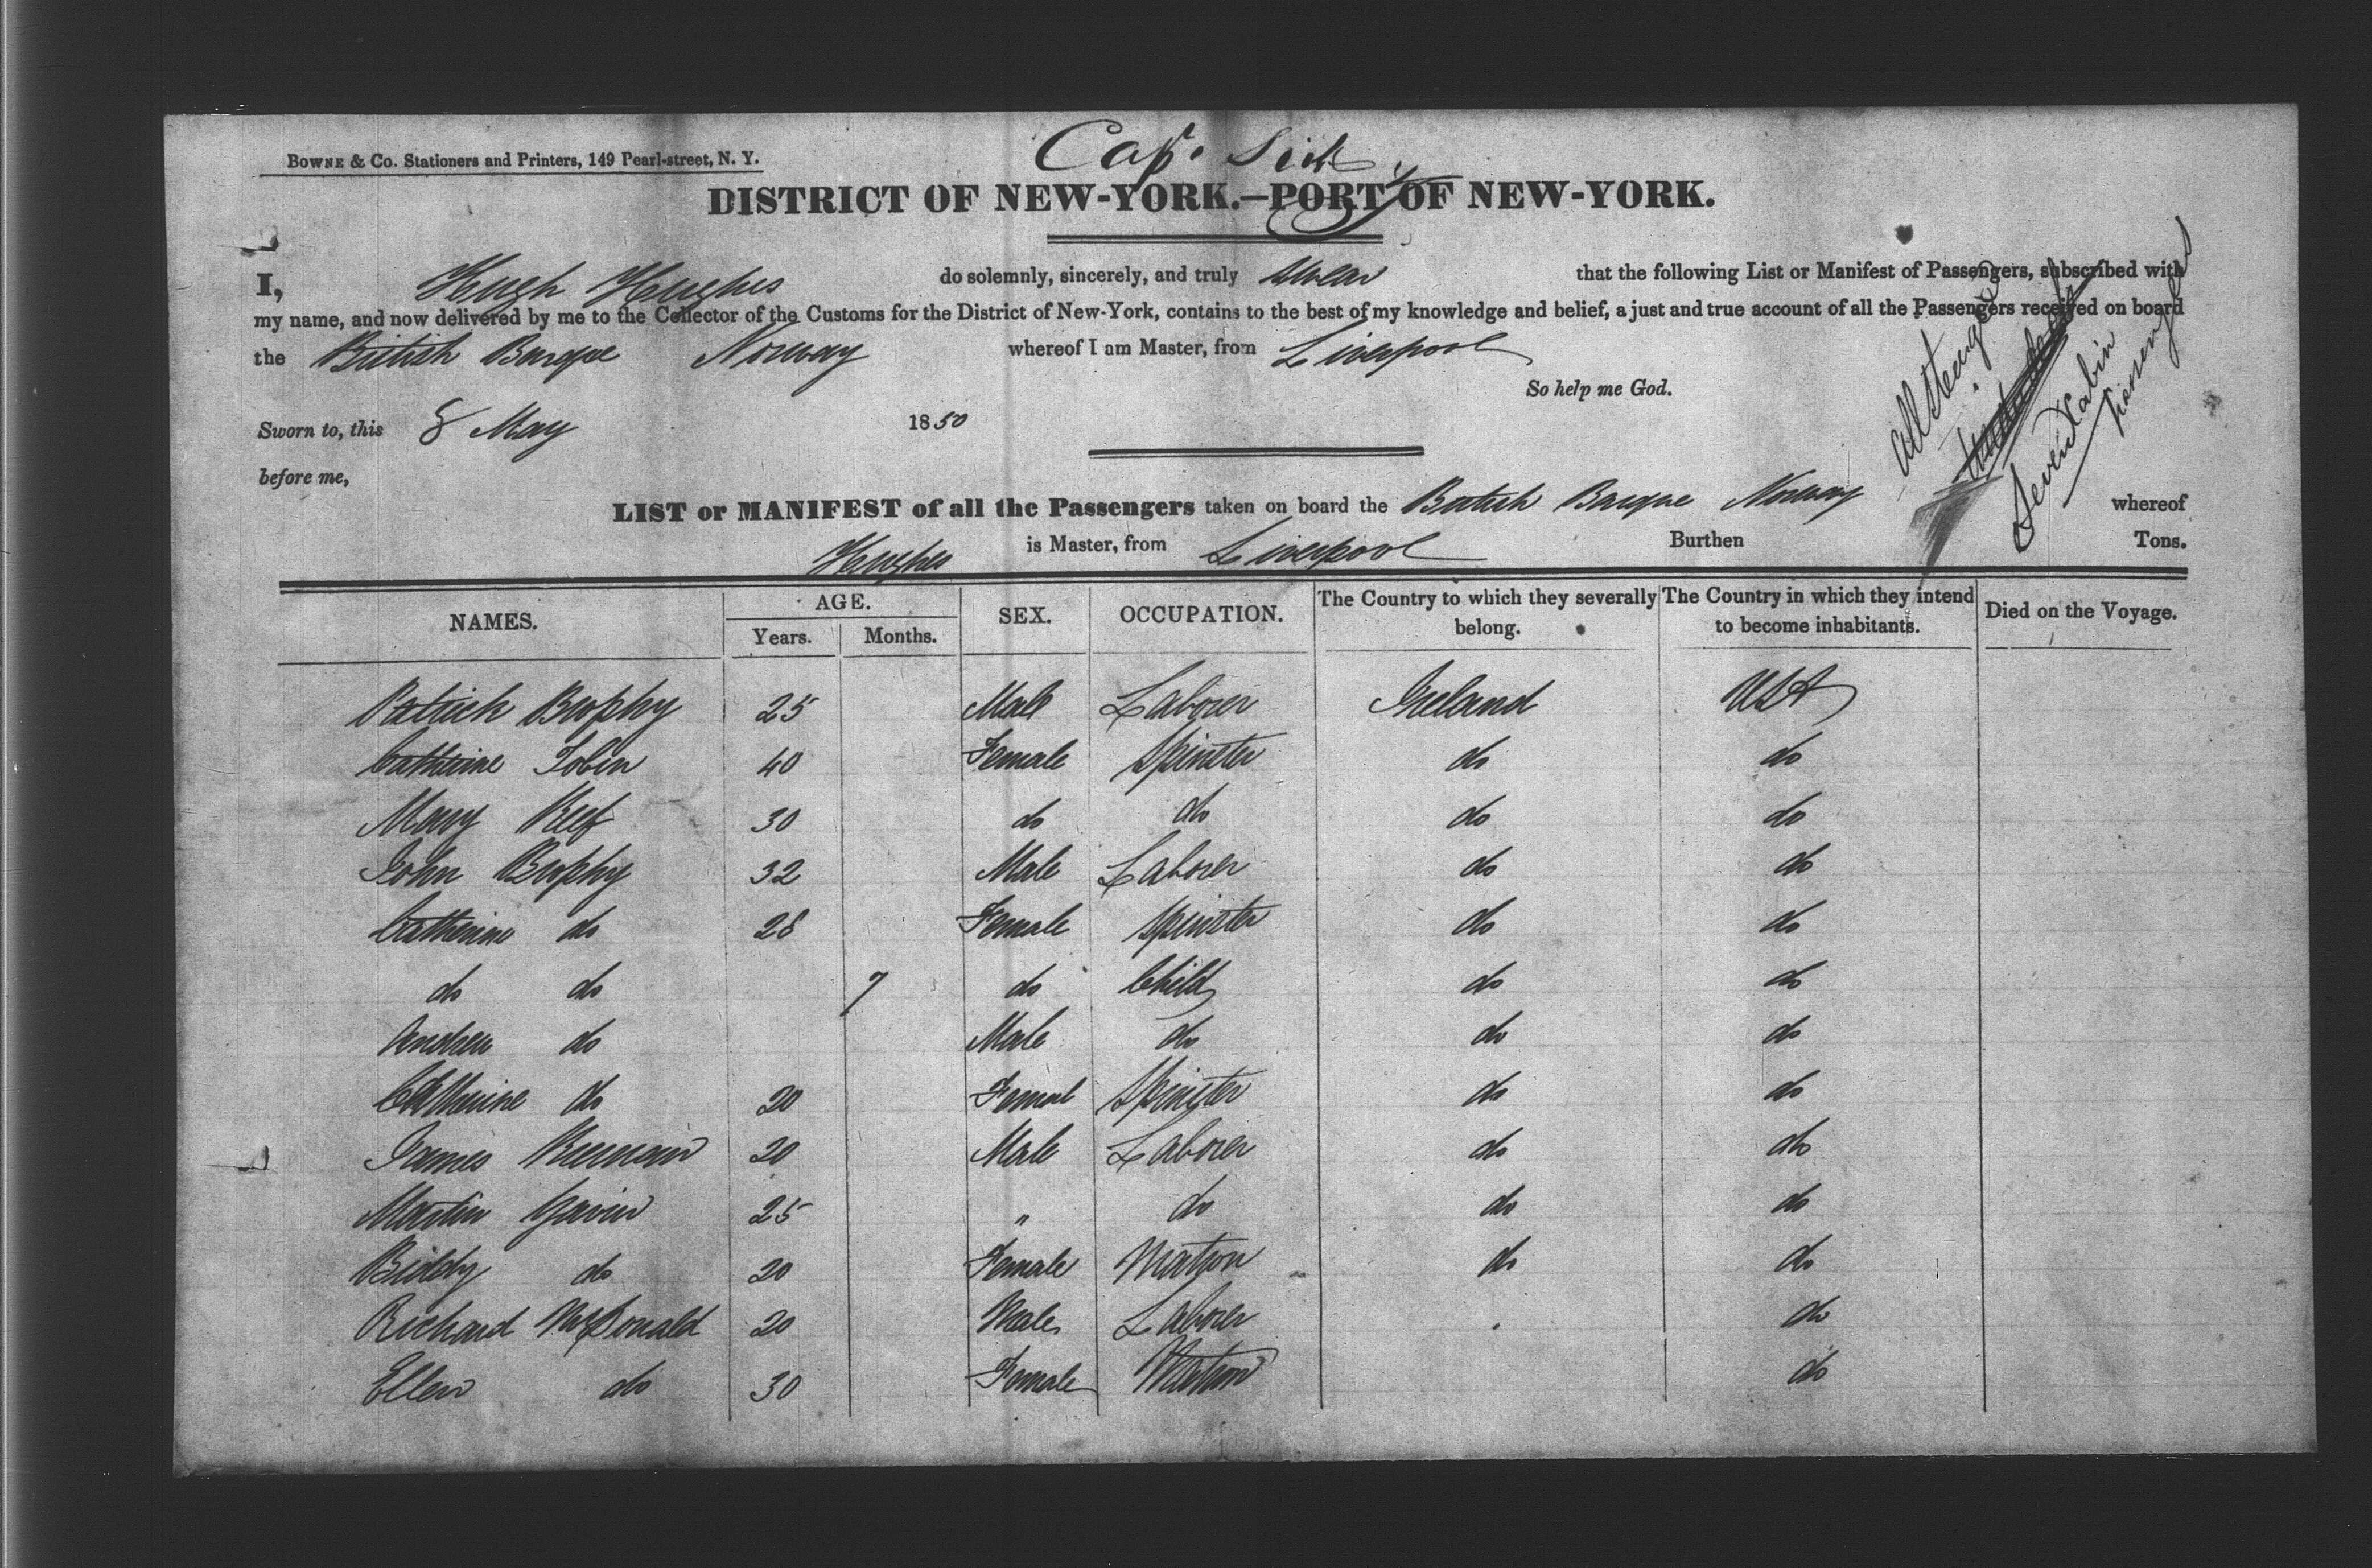 Capt. Sick
BOWNE & Co. Stationers and Printers, 149 Pearl-street, N. Y.
DISTRICT OF NEW-YORK.—PORT OF NEW-YORK.
I, Hugh Hughes do solemnly, sincerely, and truly swear that the following List or Manifest of Passengers, subscribed with
my name, and now delivered by me to the Collector of the Customs for the District of New-York, contains to the best of my knowledge and belief, a just and true account of all the Passengers received on board
the British Barque Norway whereof I am Master, from Liverpool
So help me God.
Sworn to, this 8 May 1850
before me,
all steerage
Cabin
passengers
LIST or MANIFEST of all the Passengers taken on board the British Barque Norway whereof
Hughes is Master, from Liverpool Burthen Tons.
NAMES. AGE. Years. Months. SEX. OCCUPATION. The Country to which they severally belong. The Country in which they intend to become inhabitants. Died on the Voyage.
Patrick Brophy 25 Male Laborer Ireland USA
Catherine Tobin 40 Female Spinster do do
Mary 30 do do do do
John Brophy 32 Male Laborer do do
Catherine do 28 Female Spinster do do
do do 7 do Child do do
Andrew do Male do do do
Catherine do 20 Femal Spinster do do
James 20 Male Laborer do do
Martin Gavin 25 " do do do
Biddy do 20 Female Matron do do
Richard McDonald 20 Male Laborer do
Ellen do 30 Female Matron do